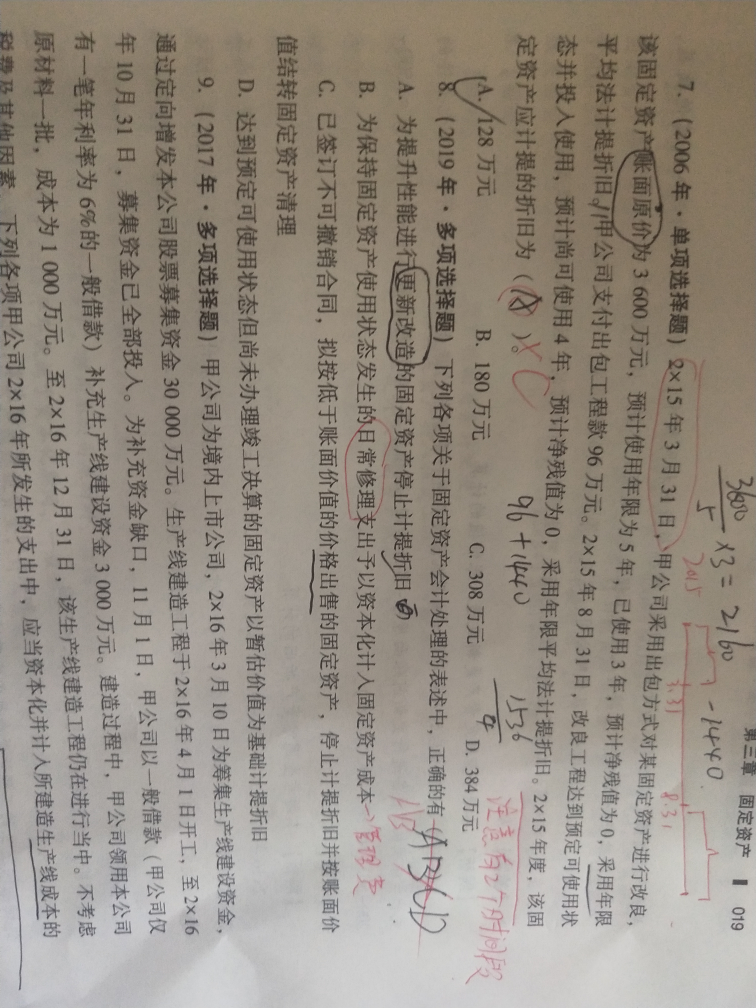 第三章 固定资产 019
3600/5 ×3 = 2160 -1440.
2015
3.31 8.31
7. (2006 年·单项选择题) 2×15 年 3 月 31 日, 甲公司采用出包方式对某固定资产进行改良,
该固定资产账面原价为 3 600 万元, 预计使用年限为 5 年, 已使用 3 年, 预计净残值为 0, 采用年限
平均法计提折旧。甲公司支付出包工程款 96 万元。2×15 年 8 月 31 日, 改良工程达到预定可使用状
态并投入使用, 预计尚可使用 4 年, 预计净残值为 0, 采用年限平均法计提折旧。2×15 年度, 该固
定资产应计提的折旧为 ( )。
C
96 + 1440
1536/4
注意有2个时间段
A. 128 万元 B. 180 万元 C. 308 万元 D. 384 万元
8. (2019 年·多项选择题) 下列各项关于固定资产会计处理的表述中, 正确的有
A. 为提升性能进行更新改造的固定资产停止计提折旧
B. 为保持固定资产使用状态发生的日常修理支出予以资本化计入固定资产成本
→管理费
C. 已签订不可撤销合同, 拟按低于账面价值的价格出售的固定资产, 停止计提折旧并按账面价
值结转固定资产清理
D. 达到预定可使用状态但尚未办理竣工决算的固定资产以暂估价值为基础计提折旧
9. (2017 年·多项选择题) 甲公司为境内上市公司, 2×16 年 3 月 10 日为筹集生产线建设资金,
通过定向增发本公司股票募集资金 30 000 万元。生产线建造工程于 2×16 年 4 月 1 日开工, 至 2×16
年 10 月 31 日, 募集资金已全部投入。为补充资金缺口, 11 月 1 日, 甲公司以一般借款 (甲公司仅
有一笔年利率为 6%的一般借款) 补充生产线建设资金 3 000 万元。建造过程中, 甲公司领用本公司
原材料一批, 成本为 1 000 万元。至 2×16 年 12 月 31 日, 该生产线建造工程仍在进行当中。不考虑
税费及其他因素, 下列各项甲公司 2×16 年所发生的支出中, 应当资本化并计入所建造生产线成本的